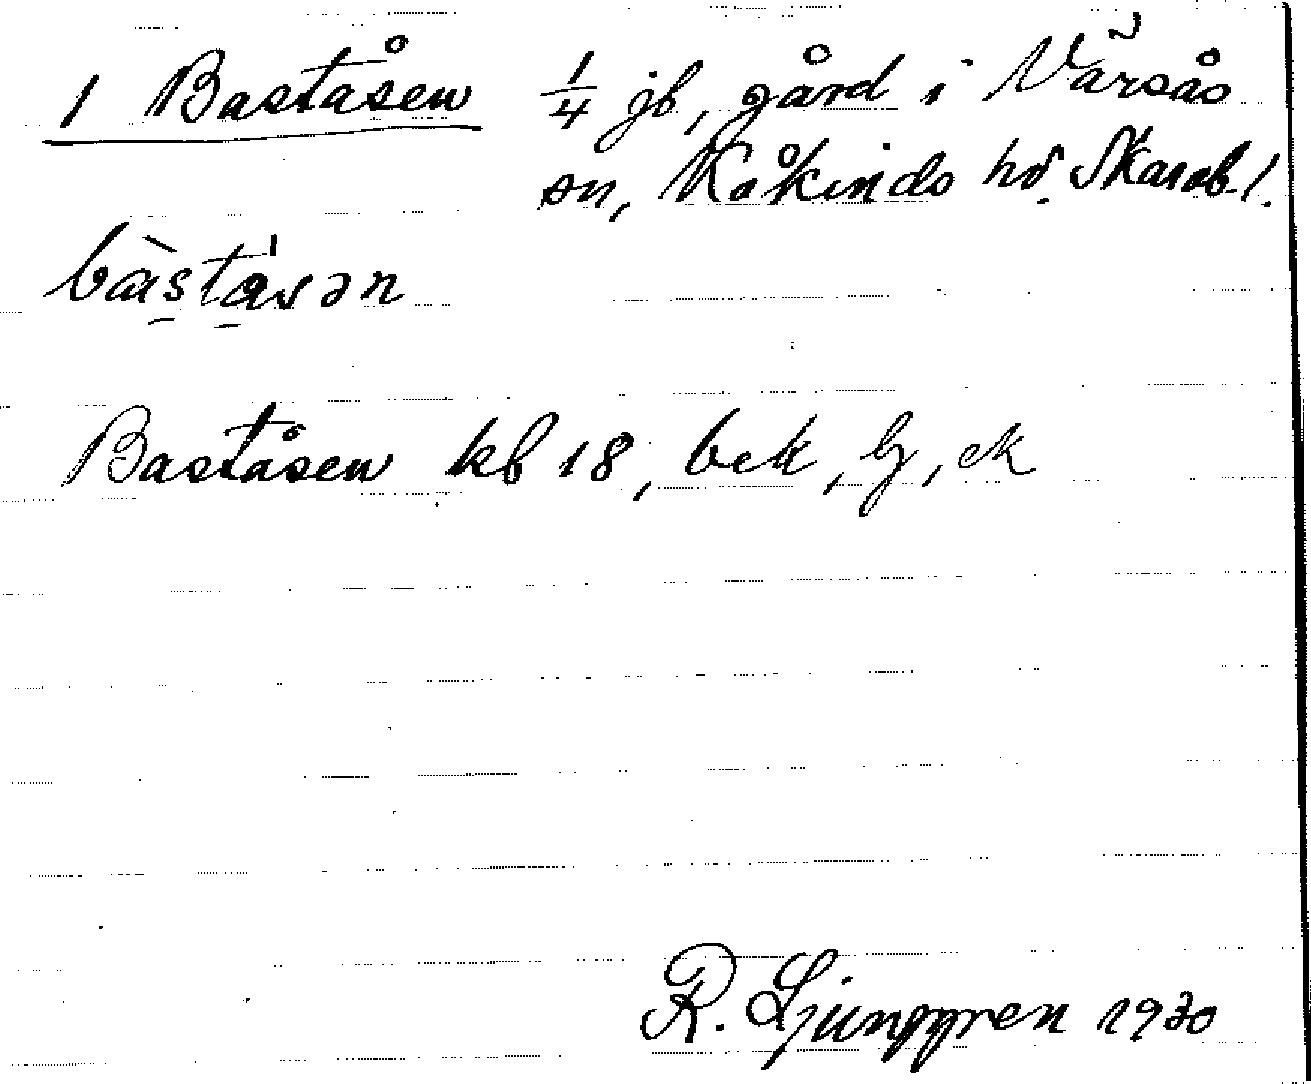 1 Baståsen 1/4 jb, gård i Värsås
sn, Kåkinds hd. Skarab l.
bàstásən
Baståsen kb 18, bek, lj, ek
R. Ljunggren 1930